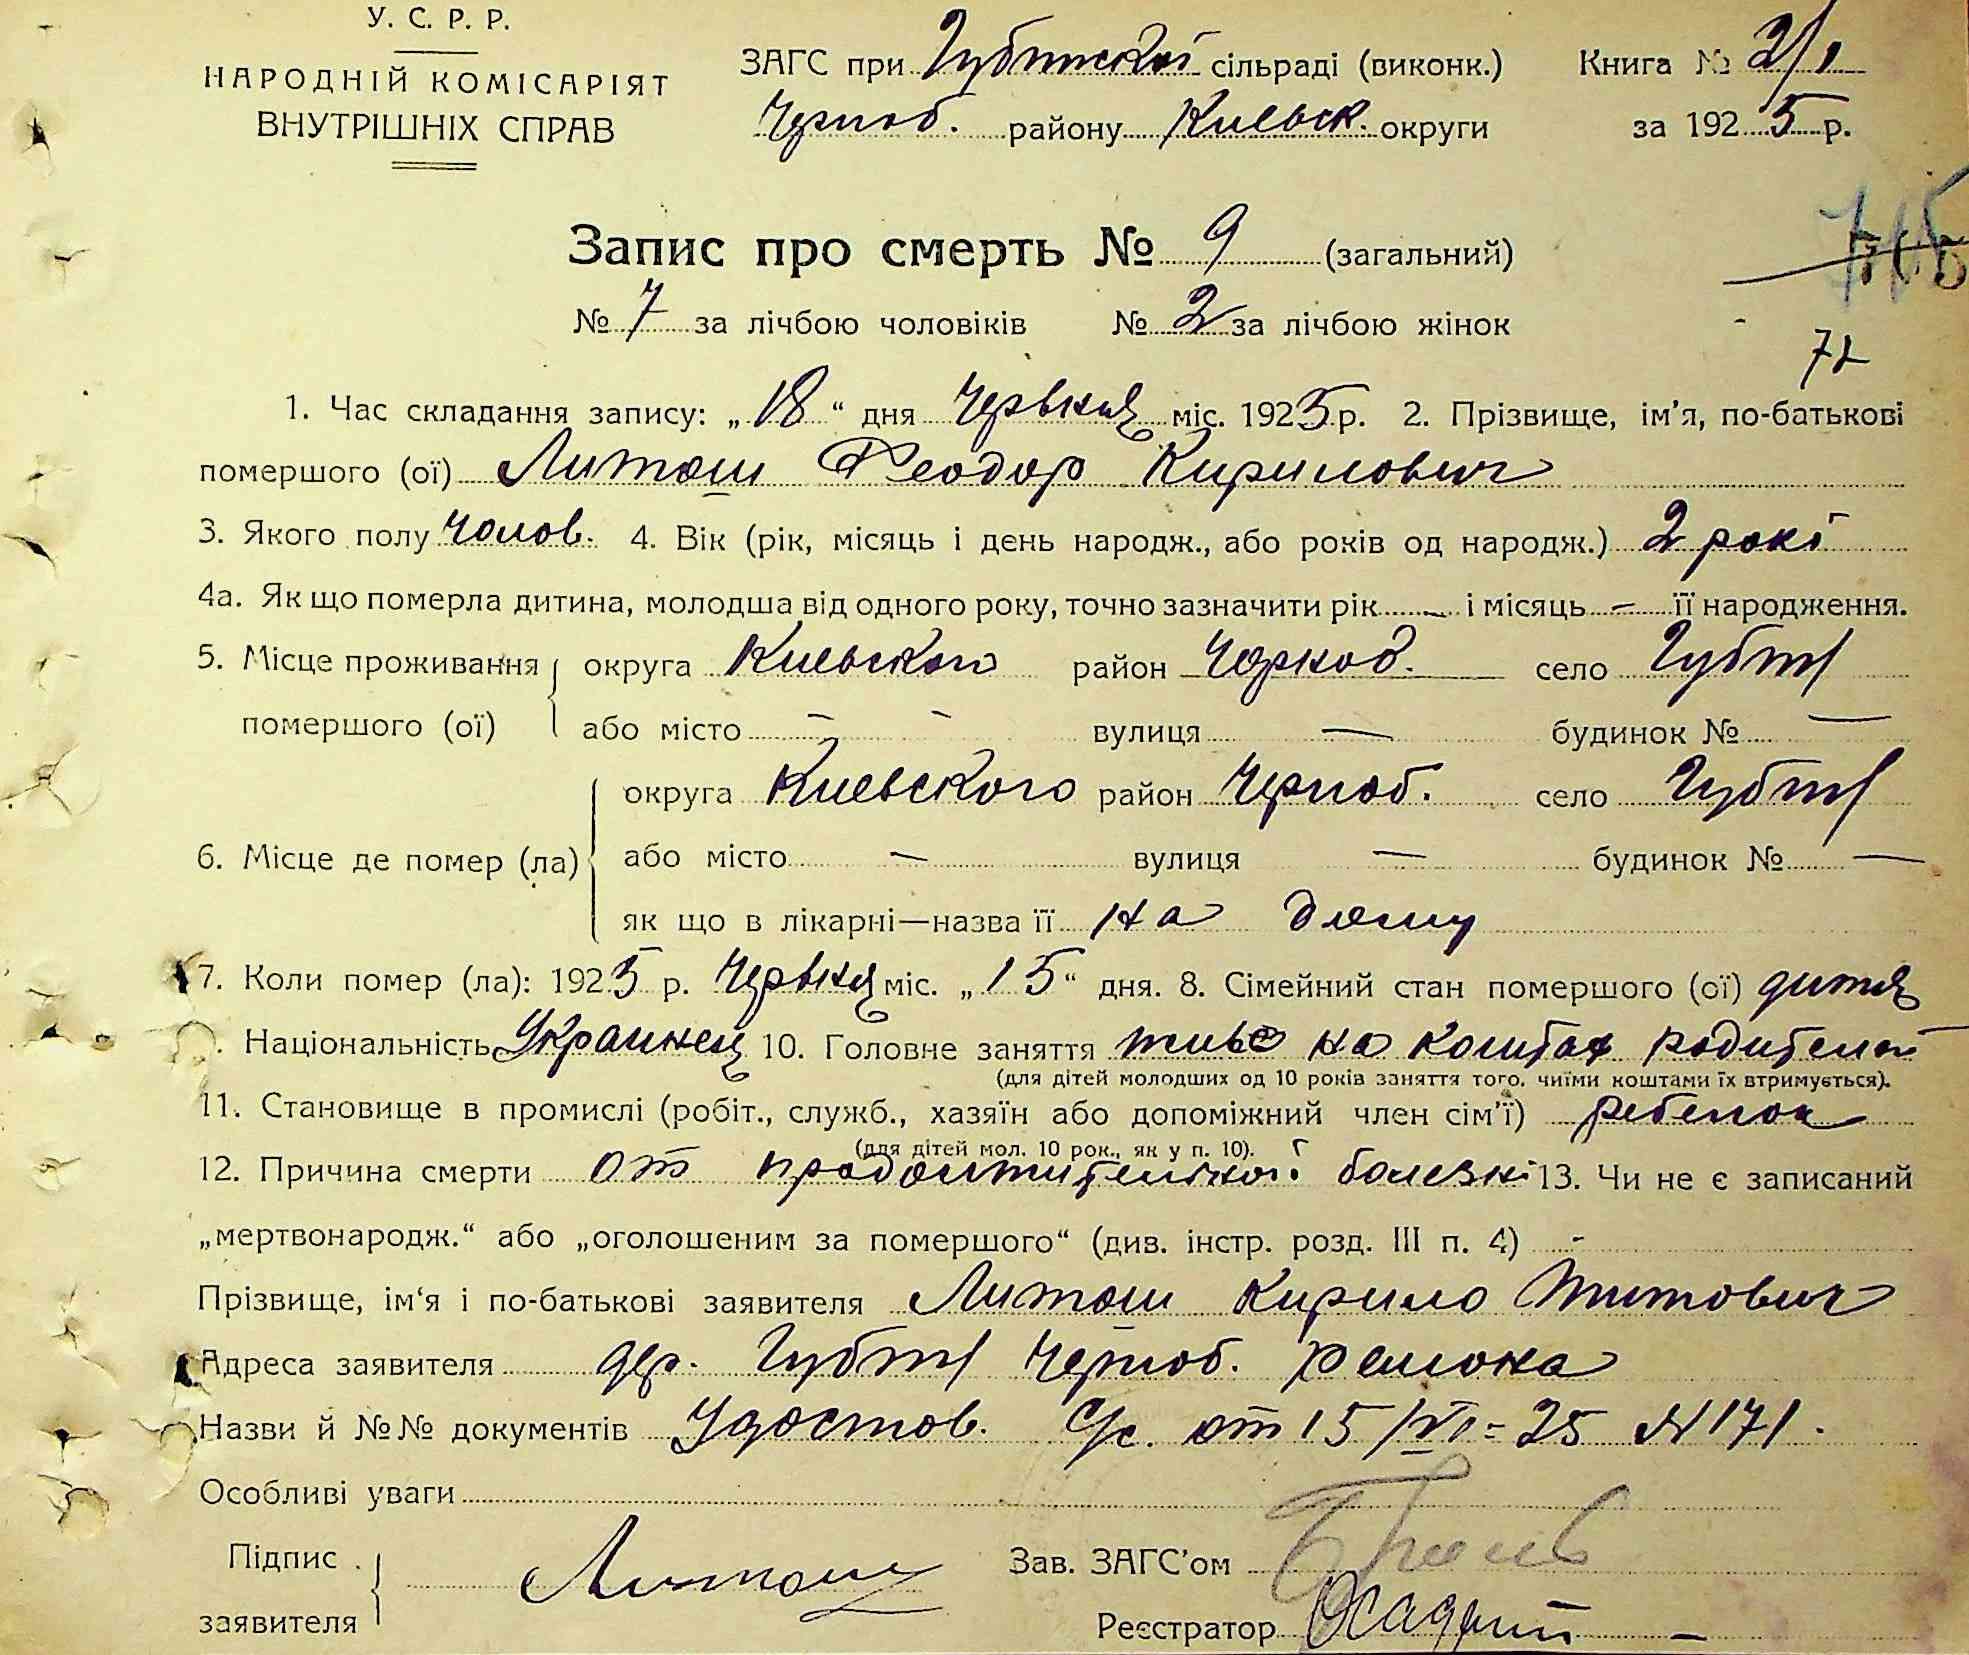 У. С. Р. Р.
НАРОДНІЙ КОМІСАРІЯТ
ВНУТРІШНІХ СПРАВ
ЗАГС при Губинской сільраді (виконк.) Книга № 2/1
Черноб. району Киевск. округи за 1925 р.
Запис про смерть № 9 (загальний)
№ 7 за лічбою чоловіків № 2 за лічбою жінок
72
1. Час складання запису: „18“ дня Червния міс. 1925 р. 2. Прізвище, ім’я, по-батькові
помершого (ої) Литош Феодор Кирилович
3. Якого полу Чолов. 4. Вік (рік, місяць і день народж., або років од народж.) 2 рокі
4а. Як що померла дитина, молодша від одного року, точно зазначити рік – і місяць – її народження.
5. Місце проживання округа Киевского район Черноб. село Губин
помершого (ої) або місто – – вулиця — будинок № —
округа Киевского район Черноб. село Губин
6. Місце де помер (ла) або місто — вулиця — будинок № —
як що в лікарні—назва її на дому
7. Коли помер (ла): 1925 р. Червня міс. „15“ дня. 8. Сімейний стан помершого (ої) дитя
. Національність Украинец 10. Головне заняття живе на коштах родителей
(для дітей молодших од 10 років заняття того, чиїми коштами їх втримується).
11. Становище в промислі (робіт., служб., хазяїн або допоміжний член сім’ї) ребенок
(для дітей мол. 10 рок., як у п. 10).
12. Причина смерти от продолжительной болезні 13. Чи не є записаний
„мертвонародж.“ або „оголошеним за помершого“ (див. інстр. розд. III п. 4) -
Прізвище, ім‘я і по-батькові заявителя Литош Кирило Титович
Адреса заявителя дер. Губин Черноб. района
Назви й №№ документів Удостов. С/с. от 15/VI=25 N 171.
Особливі уваги
Підпис Литош Зав. ЗАГС’ом
заявителя Реєстратор Осадчий